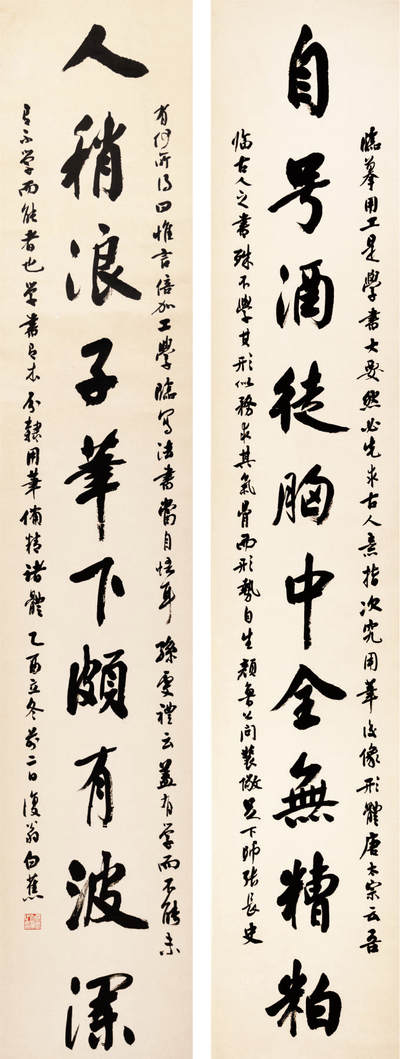 自号酒徒胸中全無糟粕
臨摹用工是學書大要然必先求古人意指次究用筆後像形體唐太宗云吾
臨古人之書殊不學其形似務求其氣骨而形勢自生顏魯公問裴儆足下師張長史
人稱浪子筆下頗有波瀾
有何所得曰惟言倍加工學臨寫法書當自悟耳孫虔禮云蓋有学而不能未
有不学而能者也学書有本分隸用筆備精諸體乙酉立冬前二日復翁白蕉